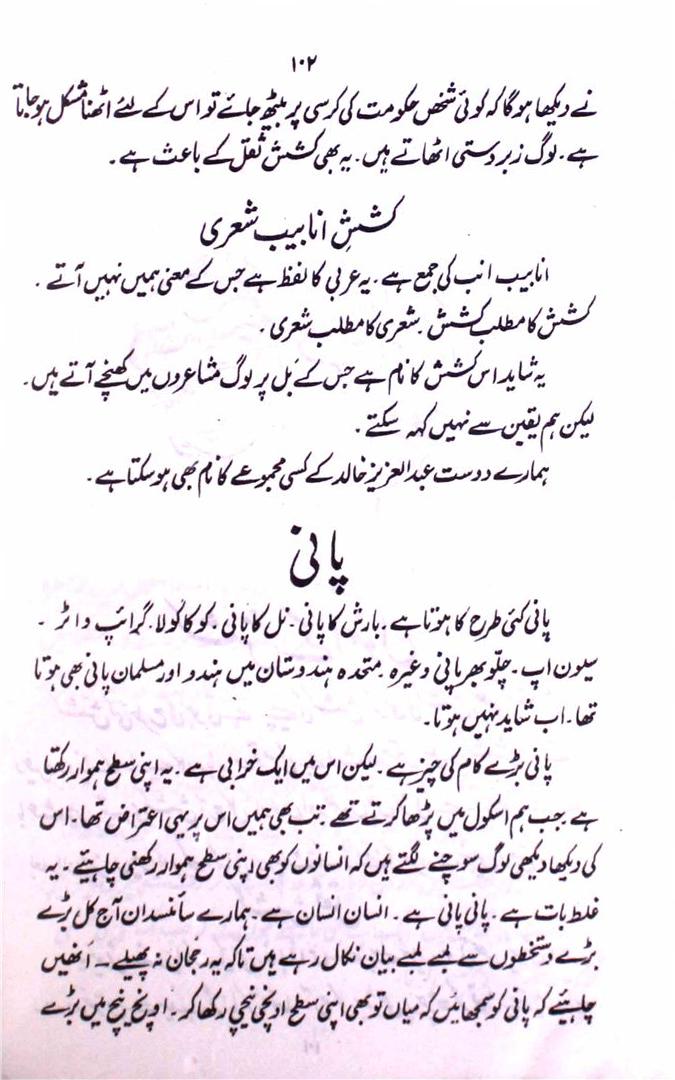 ۱۰۲
نے دیکھا ہوگا کہ کوئی شخص حکومت کی کرسی پر بیٹھ جائے تو اس کے لئے اٹھنا مشکل ہوجاتا
ہے۔ لوگ زبردستی اٹھاتے ہیں۔ یہ بھی کشش ثقل کے باعث ہے۔
کششِ انابیب شعری
انابیب انب کی جمع ہے۔ یہ عربی کا لفظ ہے جس کے معنی ہمیں نہیں آتے۔
کشش کا مطلب کشش۔ شعری کا مطلب شعری۔
یہ شاید اس کشش کا نام ہے جس کے بَل پر لوگ مشاعروں میں کھنچے آتے ہیں۔
لیکن ہم یقین سے نہیں کہہ سکتے۔
ہمارے دوست عبدالعزیز خالد کے کسی مجموعے کا نام بھی ہوسکتا ہے۔
پانی
پانی کئی طرح کا ہوتا ہے۔ بارش کا پانی۔ نل کا پانی۔ کوکا کولا۔ گرائپ واٹر۔
سیون اپ۔ چلّو بھر پانی وغیرہ۔ متحدہ ہندوستان میں ہندو اور مسلمان پانی بھی ہوتا
تھا۔ اب شاید نہیں ہوتا۔
پانی بڑے کام کی چیز ہے۔ لیکن اس میں ایک خرابی ہے۔ یہ اپنی سطح ہموار رکھتا
ہے۔ جب ہم اسکول میں پڑھا کرتے تھے۔ تب بھی ہمیں اس پر یہی اعتراض تھا۔ اس
کی دیکھا دیکھی لوگ سوچنے لگتے ہیں کہ انسانوں کو بھی اپنی سطح ہموار رکھنی چاہیئے۔ یہ
غلط بات ہے۔ پانی پانی ہے۔ انسان انسان ہے۔ ہمارے سائنسدان آج کل بڑے
بڑے دستخطوں سے لمبے لمبے بیان نکال رہے ہیں تاکہ یہ رجحان نہ پھیلے۔ اُنھیں
چاہیئے کہ پانی کو سمجھائیں کہ میاں تو بھی اپنی سطح اونچی نیچی رکھا کر۔ اونچ نیچ میں بڑے